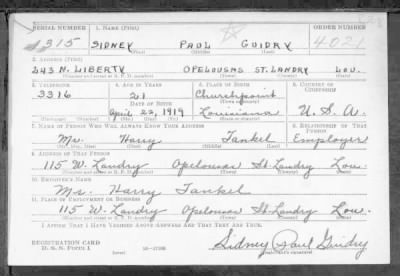 SERIAL NUMBER 1. NAME (Print) ORDER NUMBER
1315 SIDNEY PAUL GUIDRY 4021
(First) (Middle) (Last)
2. ADDRESS (Print)
243 N. LIBERTY OPELOUSAS ST. LANDRY LOU.
(Number and street or R. F. D. number) (Town) (County) (State)
3. TELEPHONE 4. AGE IN YEARS 5. PLACE OF BIRTH 6. COUNTRY OF CITIZENSHIP
3316 21 Churchpoint
DATE OF BIRTH (Town or county)
April 22, 1919 Louisiana U. S. A.
(Mo.) (Day) (Yr.) (State or country)
7. NAME OF PERSON WHO WILL ALWAYS KNOW YOUR ADDRESS 8. RELATIONSHIP OF THAT PERSON
Mr. Harry Tankel Employer
(Mr., Mrs., Miss) (First) (Middle) (Last)
9. ADDRESS OF THAT PERSON
115 W. Landry Opelousas St. Landry Lou.
(Number and street or R. F. D. number) (Town) (County) (State)
10. EMPLOYER'S NAME
Mr. Harry Tankel
11. PLACE OF EMPLOYMENT OR BUSINESS
115 W. Landry Opelousas St. Landry Lou.
(Number and street or R. F. D. number) (Town) (County) (State)
I AFFIRM THAT I HAVE VERIFIED ABOVE ANSWERS AND THAT THEY ARE TRUE.
REGISTRATION CARD
D. S. S. Form 1 (over) 16—17105 Sidney Paul Guidry
(Registrant's signature)